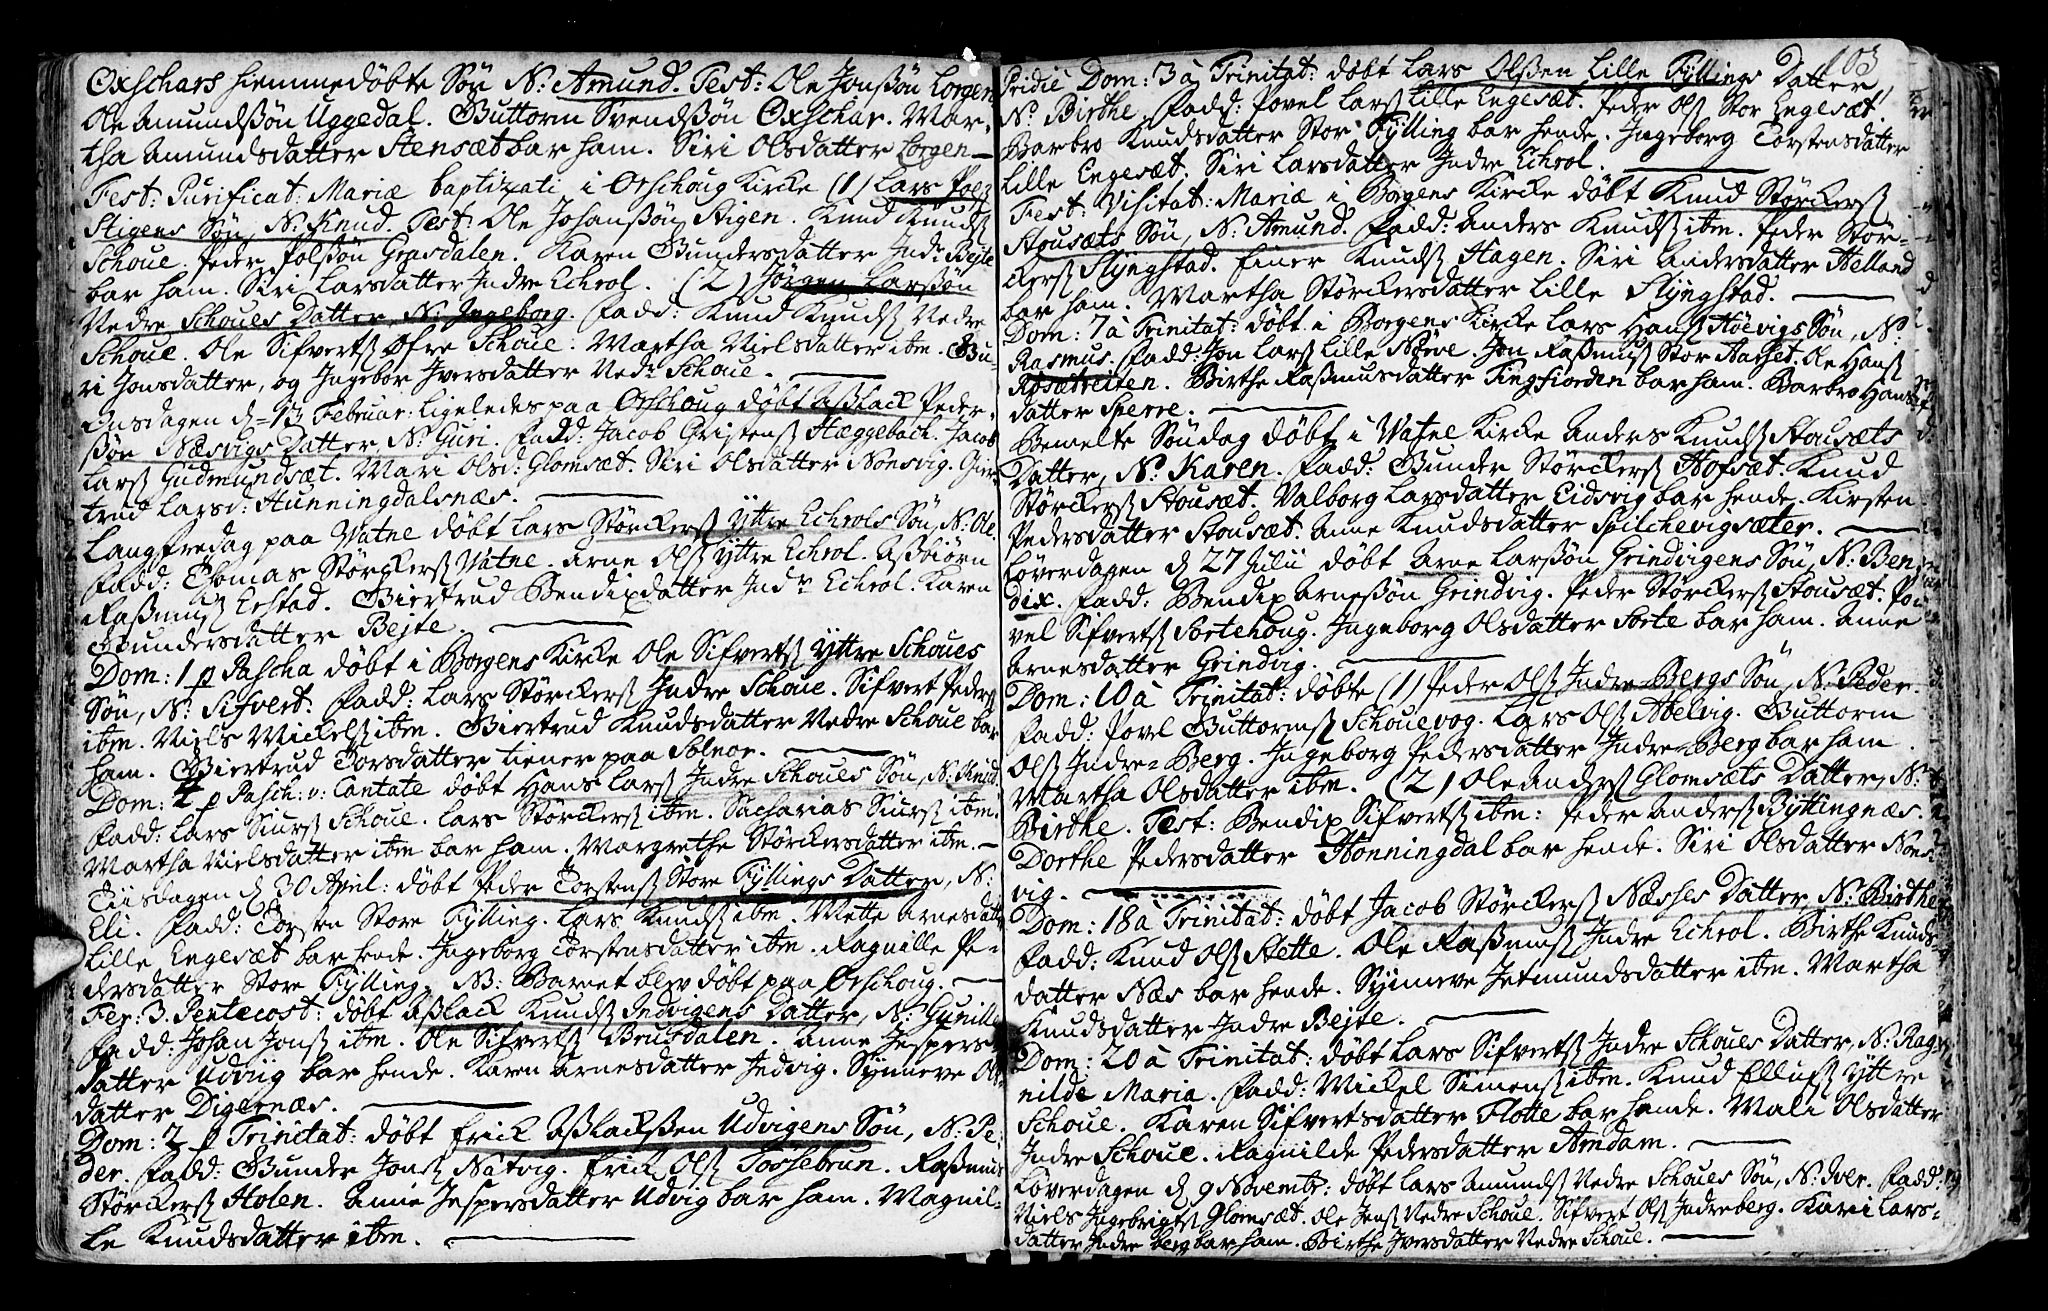 Oxschars hiemmedøbte Søn N: Amund. Test: Ole Jonssøn Lorgen
Ole Amundssøn Uggedal. Guttorm Svendssøn Oxschar. Mar-
tha Amundsdatter Stensæt bar ham. Siri Olsdatter Lorgen —
Fest: Purificat: Mariæ baptizati i Ørschoug Kirke (1) Lars Pols
Stigens Søn, N: Knud. Test: Ole Johanssøn Stigen. Knud Knuds
Schoue. Peder Polssøn Grasdalen. Karen Gundersdatter Indr Bejte
bar ham. Siri Larsdatter Indre Echrol. (2) Jørgen Larssøn
Nedre Schoues Datter, N: Ingeborg. Fadd: Knud Knuds Nedre
Schoue. Ole Sifverts Øfre Schoue. Martha Nielsdatter ibm. Gu-
ri Jonsdatter, og Ingebor Iversdatter Nedr Schoue.
Onsdagen d 13 Februar: ligeledes paa Ørschoug døbt Asslack Peder-
ssøn Næsvigs Datter, N: Guri. Fadd: Jacob Christens Hæggebach. Jacob
Lars Gudmundsæt. Mari Olsd: Glomsæt. Siri Olsdatter Nonsvig. Gier-
trud Larsd: Hunningdalsnæs.
Langfredag paa Vatne døbt Lars Størckers Yttre Echrols Søn, N: Ole.
Fadd: Tomas Størckers Vatne. Arne Ols Yttre Echrol. Assbiørn
Rassmus Erstad. Giertrud Bendixdatter Indr Echrol. Karen
Gundersdatter Bejte.
Dom: 1 p Pascha døbt i Borgens Kirke Ole Sifverts Yttre Schoues
Søn, N: Sifvert. Fadd: Lars Størckers Indre Schoue. Sifvert Peders
ibm. Niels Mickels ibm. Giertrud Knudsdatter Nedre Schoue bar
ham. Giertrud Torsdatter tiener paa Solnor.
Dom: 4 p Pasch: v: Cantate døbt Hans Lars Indre Schoues Søn, N: Knud.
Fadd: Lars Siurs Schoue. Lars Størckers ibm. Sacharias Siurs ibm.
Martha Nielsdatter ibm bar ham. Margrethe Størckersdatter ibm. —
Tiisdagen d 30 April: døbt Peder Torstens Store Fyllings Datter, N:
Eli. Fadd: Torsten Store Fylling. Lars Knuds ibm. Mette Arnesdatt
Lille Engesæt bar hende. Ingeborg Torstensdatter ibm. Ragnille Pe-
dersdatter Store Fylling. NB: Barnet blev døbt paa Ørschoug.
Fer: 3. Pentecost: døbt Asslack Knuds Indvigens Datter, N: Gunille
Fadd: Johan Jons ibm. Ole Sifverts Brusdalen. Anne Jespers
datter Udviig bar hende. Karen Arnesdatter Indvig. Synneve Ols
datter Digernæs.
Dom: 2 p Trinitat: døbt Erick Asslackssen Udvigens Søn, N: Pe-
der. Fadd: Gunder Jons Natvig. Erick Ols Tossebrun. Rassmus
Størckers Holen. Anne Jespersdatter Udvig bar ham. Magnil-
le Knudsdatter ibm.
103
Pridie Dom: 3 à Trinitat: døbt Lars Olssen Lille Fyllings Datter
N: Birthe. Fadd: Povel Lars Lille Engesæt. Peder Ols Stor Engesæt.
Barbro Knudsdatter Stor Fylling bar hende. Ingeborg Torstensdatter
Lille Engesæt. Siri Larsdatter Indre Echrol.
Fest: Visitat: Mariæ i Borgens Kirke døbt Knud Størckers
Stousæts Søn, N: Amund. Fadd: Anders Knuds ibm. Peder Stør-
ckers Slyngstad. Einer Knuds Hagen. Siri Andersdatter Helland
bar ham. Martha Størckersdatter Lille Slyngstad.
Dom: 7 à Trinitat: døbt i Borgens Kirke Lars Hans Høevigs Søn, N:
Rasmus. Fadd: Jon Lars Lille Nøeve. Jon Rassmus Stor Aarset. Ole Hans
Røsætreiten. Birthe Rassmusdatter Tingfiorden bar ham. Barbro Hans-
datter Sperre.
Bemelte Søndag døbt i Vatne Kirke Anders Knuds Stousæts
Datter, N: Karen. Fadd: Gunder Størckers Hofsæt. Knud
Størckers Stousæt. Valborg Larsdatter Eidsvig bar hende. Kirsten
Pedersdatter Stousæt. Anne Knudsdatter Spilchevigsæter.
Løverdagen d 27 Julii døbt Arne Larssøn Grindvigens Søn, N: Ben-
dix. Fadd: Bendix Arnessøn Grindvig. Peder Størckers Stousæt. Po-
vel Sifverts Sortehoug. Ingeborg Olsdatter Sorte bar ham. Anne
Arnesdatter Grindvig.
Dom: 10 à Trinitat: døbte (1) Peder Ols Indre Bergs Søn, N: Peder.
Fadd: Povel Guttorms Schouevog. Lars Ols Abelvig. Guttorm
Ols Indre-Berg. Ingeborg Pedersdatter Indre-Berg bar ham.
Martha Olsdatter ibm. (2) Ole Anders Glomsæts Datter, N:
Birthe. Test: Bendix Sifverts ibm: Peder Anders Byttingnæs.
Dorthe Pedersdatter Honningdal bar hende. Siri Olsdatter Nons-
vig.
Dom: 18 à Trinitat: døbt Jacob Størckers Næsses Datter, N: Birthe
Fadd: Knud Ols Stette. Ole Rassmus Indre Echrol. Birthe Knuds-
datter Næs bar hende. Synneve Jetmundsdatter ibm. Martha
Knudsdatter Indre Bejte.
Dom: 20 à Trinitat: døbt Lars Sifverts Indre Schoues Datter, N: Rag-
nilde Maria. Fadd: Mickel Simens ibm. Knud Ellufs Yttre
Schoue. Karen Sifvertsdatter Flotte bar hende. Mali Olsdatter
Indre Schoue. Ragnilde Pedersdatter Amdam.
Løverdagen d 9 Novembr: døbt Lars Amunds Nedre Schoues Søn, N: Iver. Fadd:
Niels Ingebrigts Glomsæt. Ole Jens Nedre Schoue. Sifvert Ols Indreberg. Kari Lars-
datter Indre berg bar ham. Birthe Iversdatter Nedre Schoue.